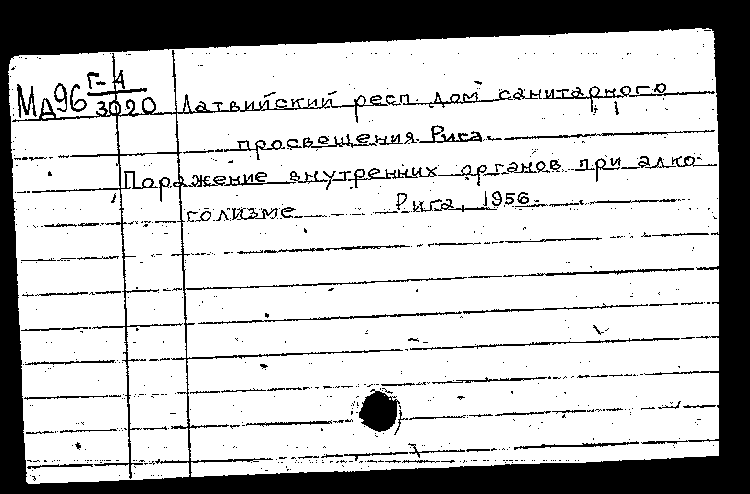 Мд96 Г-4
3020 Латвийский респ. дом санитарного
просвещения. Рига.
Поражение внутренних органов при алко-
голизме Рига, 1956.